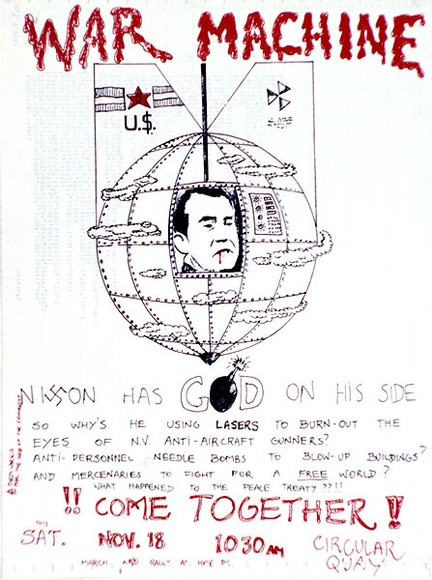 WAR MACHINE
U.$.
NI卐ON HAS GOD ON HIS SIDE
SO WHY'S HE USING LASERS TO BURN-OUT THE
EYES OF N.V. ANTI-AIRCRAFT GUNNERS?
ANTI-PERSONNEL NEEDLE BOMBS TO BLOW-UP BUILDINGS?
AND MERCENARIES TO FIGHT FOR A FREE WORLD?
WHAT HAPPENED TO THE PEACE TREATY ??!!
!! COME TOGETHER !!
THIS
SAT. NOV. 18 10 30 AM CIRCULAR QUAY
MARCH, AND RALLY AT